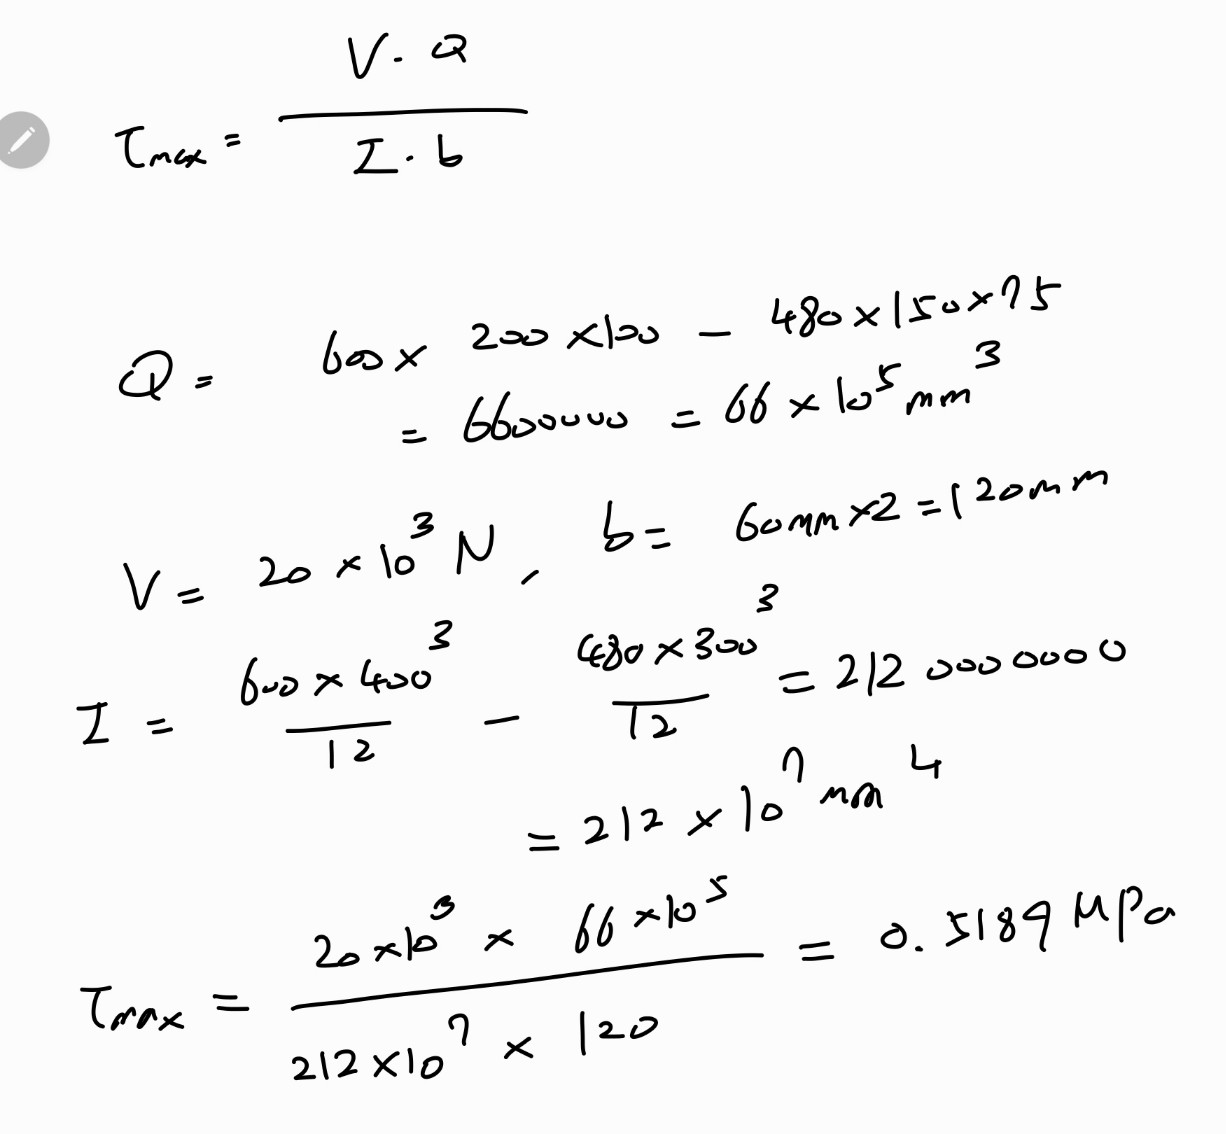 τmax = V · Q / I · b
Q = 600 × 200 × 100 − 480 × 150 × 75
= 6600000 = 66 × 10⁵ mm³
V = 20 × 10³ N, b = 60mm × 2 = 120mm
I = 600 × 400³ / 12 − 480 × 300³ / 12 = 2120000000
= 212 × 10⁷ mm⁴
τmax = 20 × 10³ × 66 × 10⁵ / 212 × 10⁷ × 120 = 0.5189 MPa